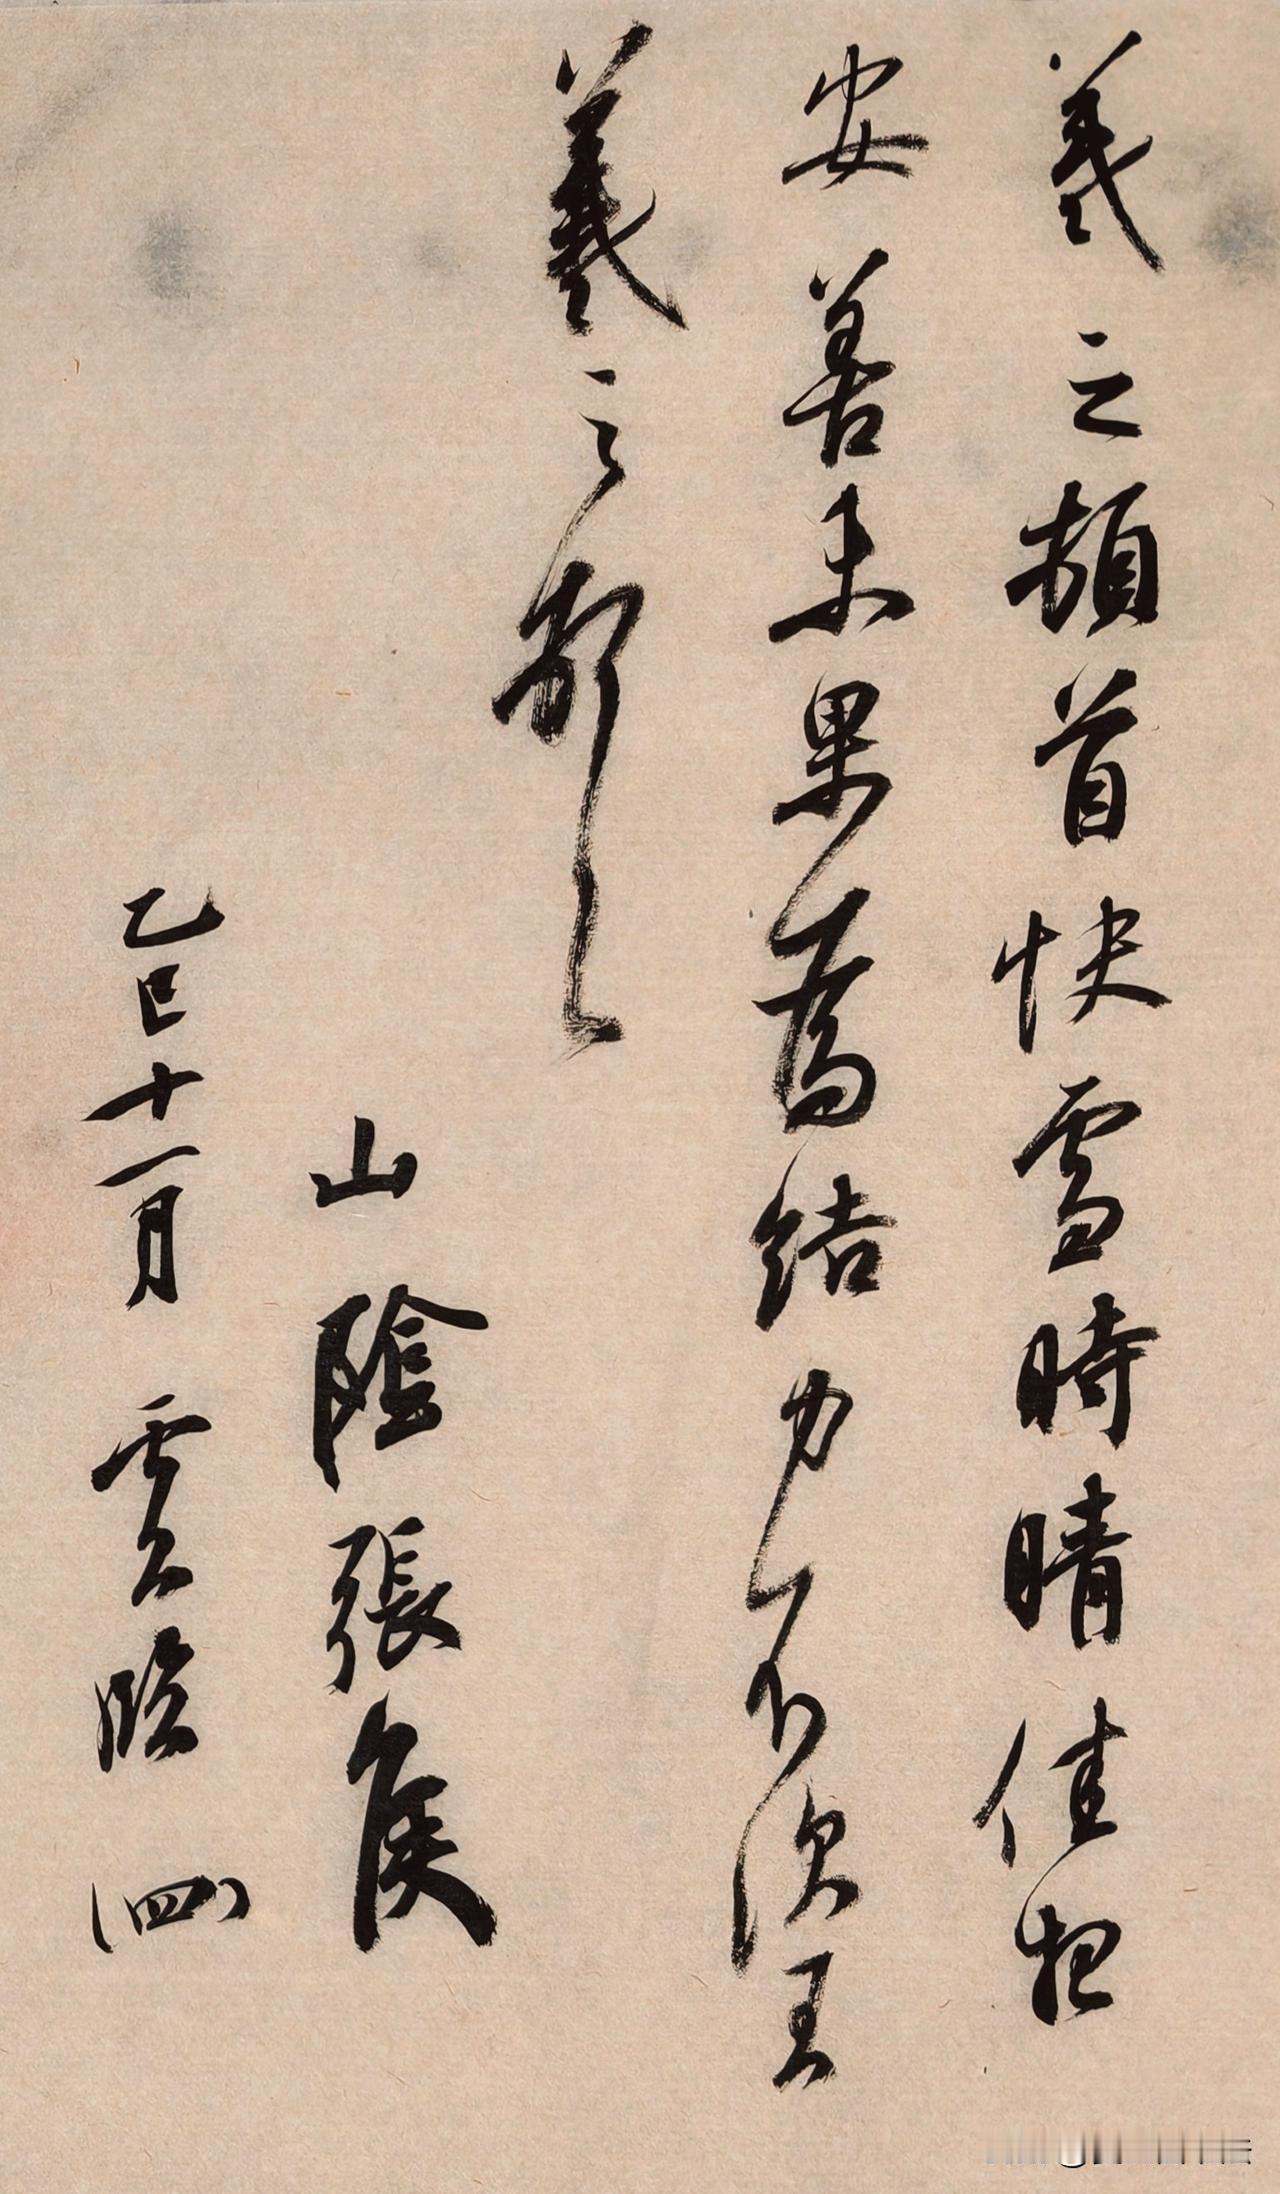 羲之頓首快雪時晴佳想
安善未果為結力不次王
羲之頓首
山陰張侯
乙巳十一月 雲臨